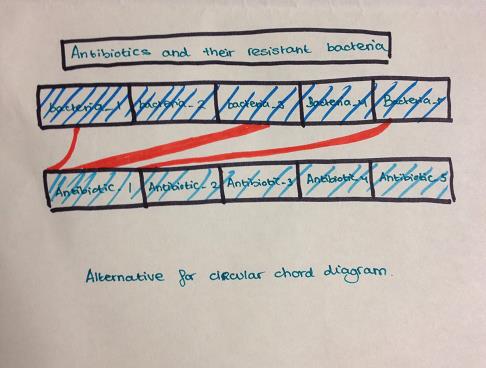 Antibiotics and their resistant bacteria
bacteria_1 bacteria_2 bacteria_3 Bacteria_4 Bacteria_5
Antibiotic_1 Antibiotic_2 Antibiotic_3 Antibiotic_4 Antibiotic_5
Alternative for circular chord diagram.